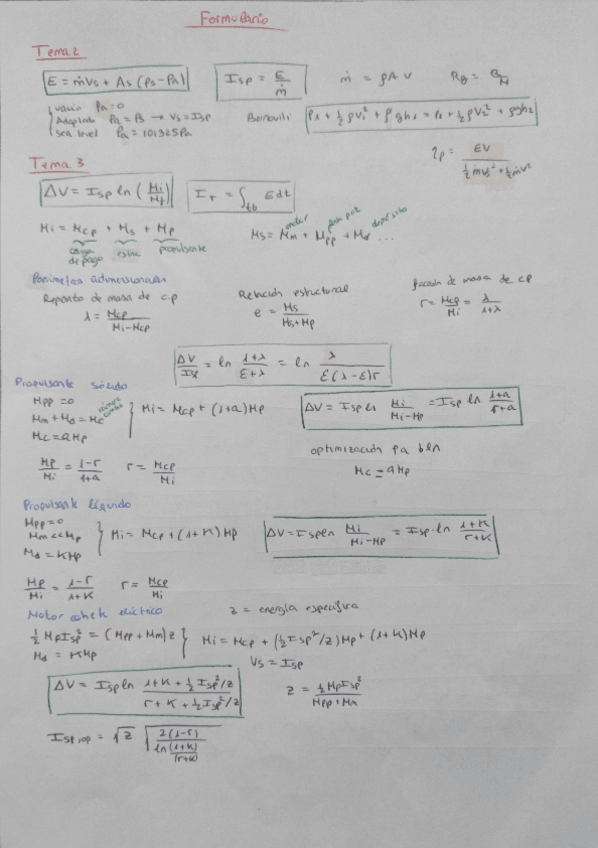 Formulario
Tema 2
E = ṁVs + As (ps - Pa)
Isp = E/ṁ
ṁ = ρAV
vacío Pa = 0
Adaptada Pa = Ps → Vs = Isp
sea level Pa = 101325 Pa
Bernouili P1 + ½ρV1² + ρgh1 = P2 + ½ρV2² + ρgh2
ηp = EV / (½ṁVs² + ½ṁV²)
Tema 3
ΔV = Isp ln (Mi/Mf)
Ir = ∫tb E dt
Mi = Mcp + Ms + Mp
carga de pago
estruc
propulsante
motor
depósito
Ms = Mm + Mpp + Md ...
Parámetros adimensionales
Reparto de masa de c.p
λ = Mcp / (Mi-Mcp)
Relación estructural
e = Ms / (Ms+Mp)
fracción de masa de cp
r = Mcp/Mi = λ/(1+λ)
ΔV/Isp = ln (1+λ)/(ε+λ) = ln λ/(ε(λ-ε)r)
Propulsante sólido
Mpp = 0
Mm + Md = Mc
Mc = aMp
Mi = Mcp + (1+a)Mp
ΔV = Isp ln Mi/(Mi-Mp) = Isp ln (1+a)/(r+a)
optimización pa
Mc = aMp
Mp/Mi = (1-r)/(1+a)
r = Mcp/Mi
Propulsante líquido
Mpp = 0
Mm << Mp
Md = KMp
Mi = Mcp + (1+K)Mp
ΔV = Isp ln Mi/(Mi-Mp) = Isp · ln (1+K)/(r+K)
Mp/Mi = (1-r)/(1+K)
r = Mcp/Mi
Motor cohete eléctrico
z = energía específica
½MpIsp² = (Mpp + Mm)z
Md = KMp
Mi = Mcp + (½Isp²/z)Mp + (1+K)Mp
Vs = Isp
ΔV = Isp ln (1+K+½Isp²/z)/(r+K+½Isp²/z)
z = ½MpIsp²/(Mpp+Mm)
Isp,op = √z √(2(1-r)/ln((1+K)/(r+K)))